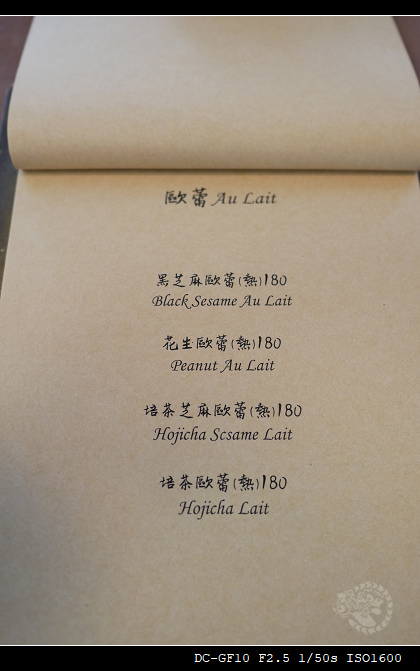 歐蕾 Au Lait
黑芝麻歐蕾(熱)180
Black Sesame Au Lait
花生歐蕾(熱)180
Peanut Au Lait
培茶芝麻歐蕾(熱)180
Hojicha Scsame Lait
培茶歐蕾(熱)180
Hojicha Lait
DC-GF10 F2.5 1/50s ISO1600